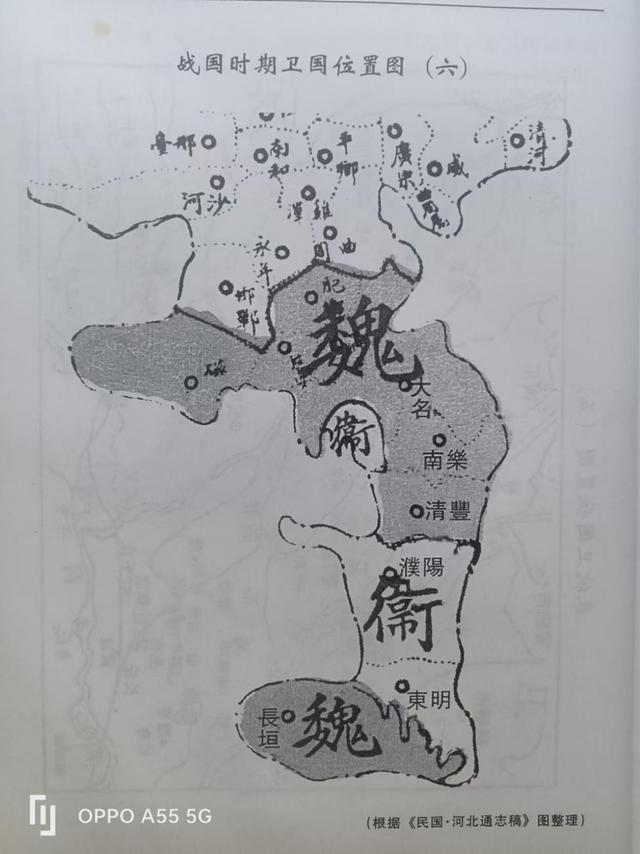 战国时期卫国位置图（六）
臺邢
南和
平鄉
廣宗
威
清河
河沙
澤雞
永年
周曲
邯鄲
肥
魏
磁
大名
衞
南樂
清豐
濮陽
衞
東明
長垣
魏
OPPO A55 5G
(根据《民国·河北通志稿》图整理)